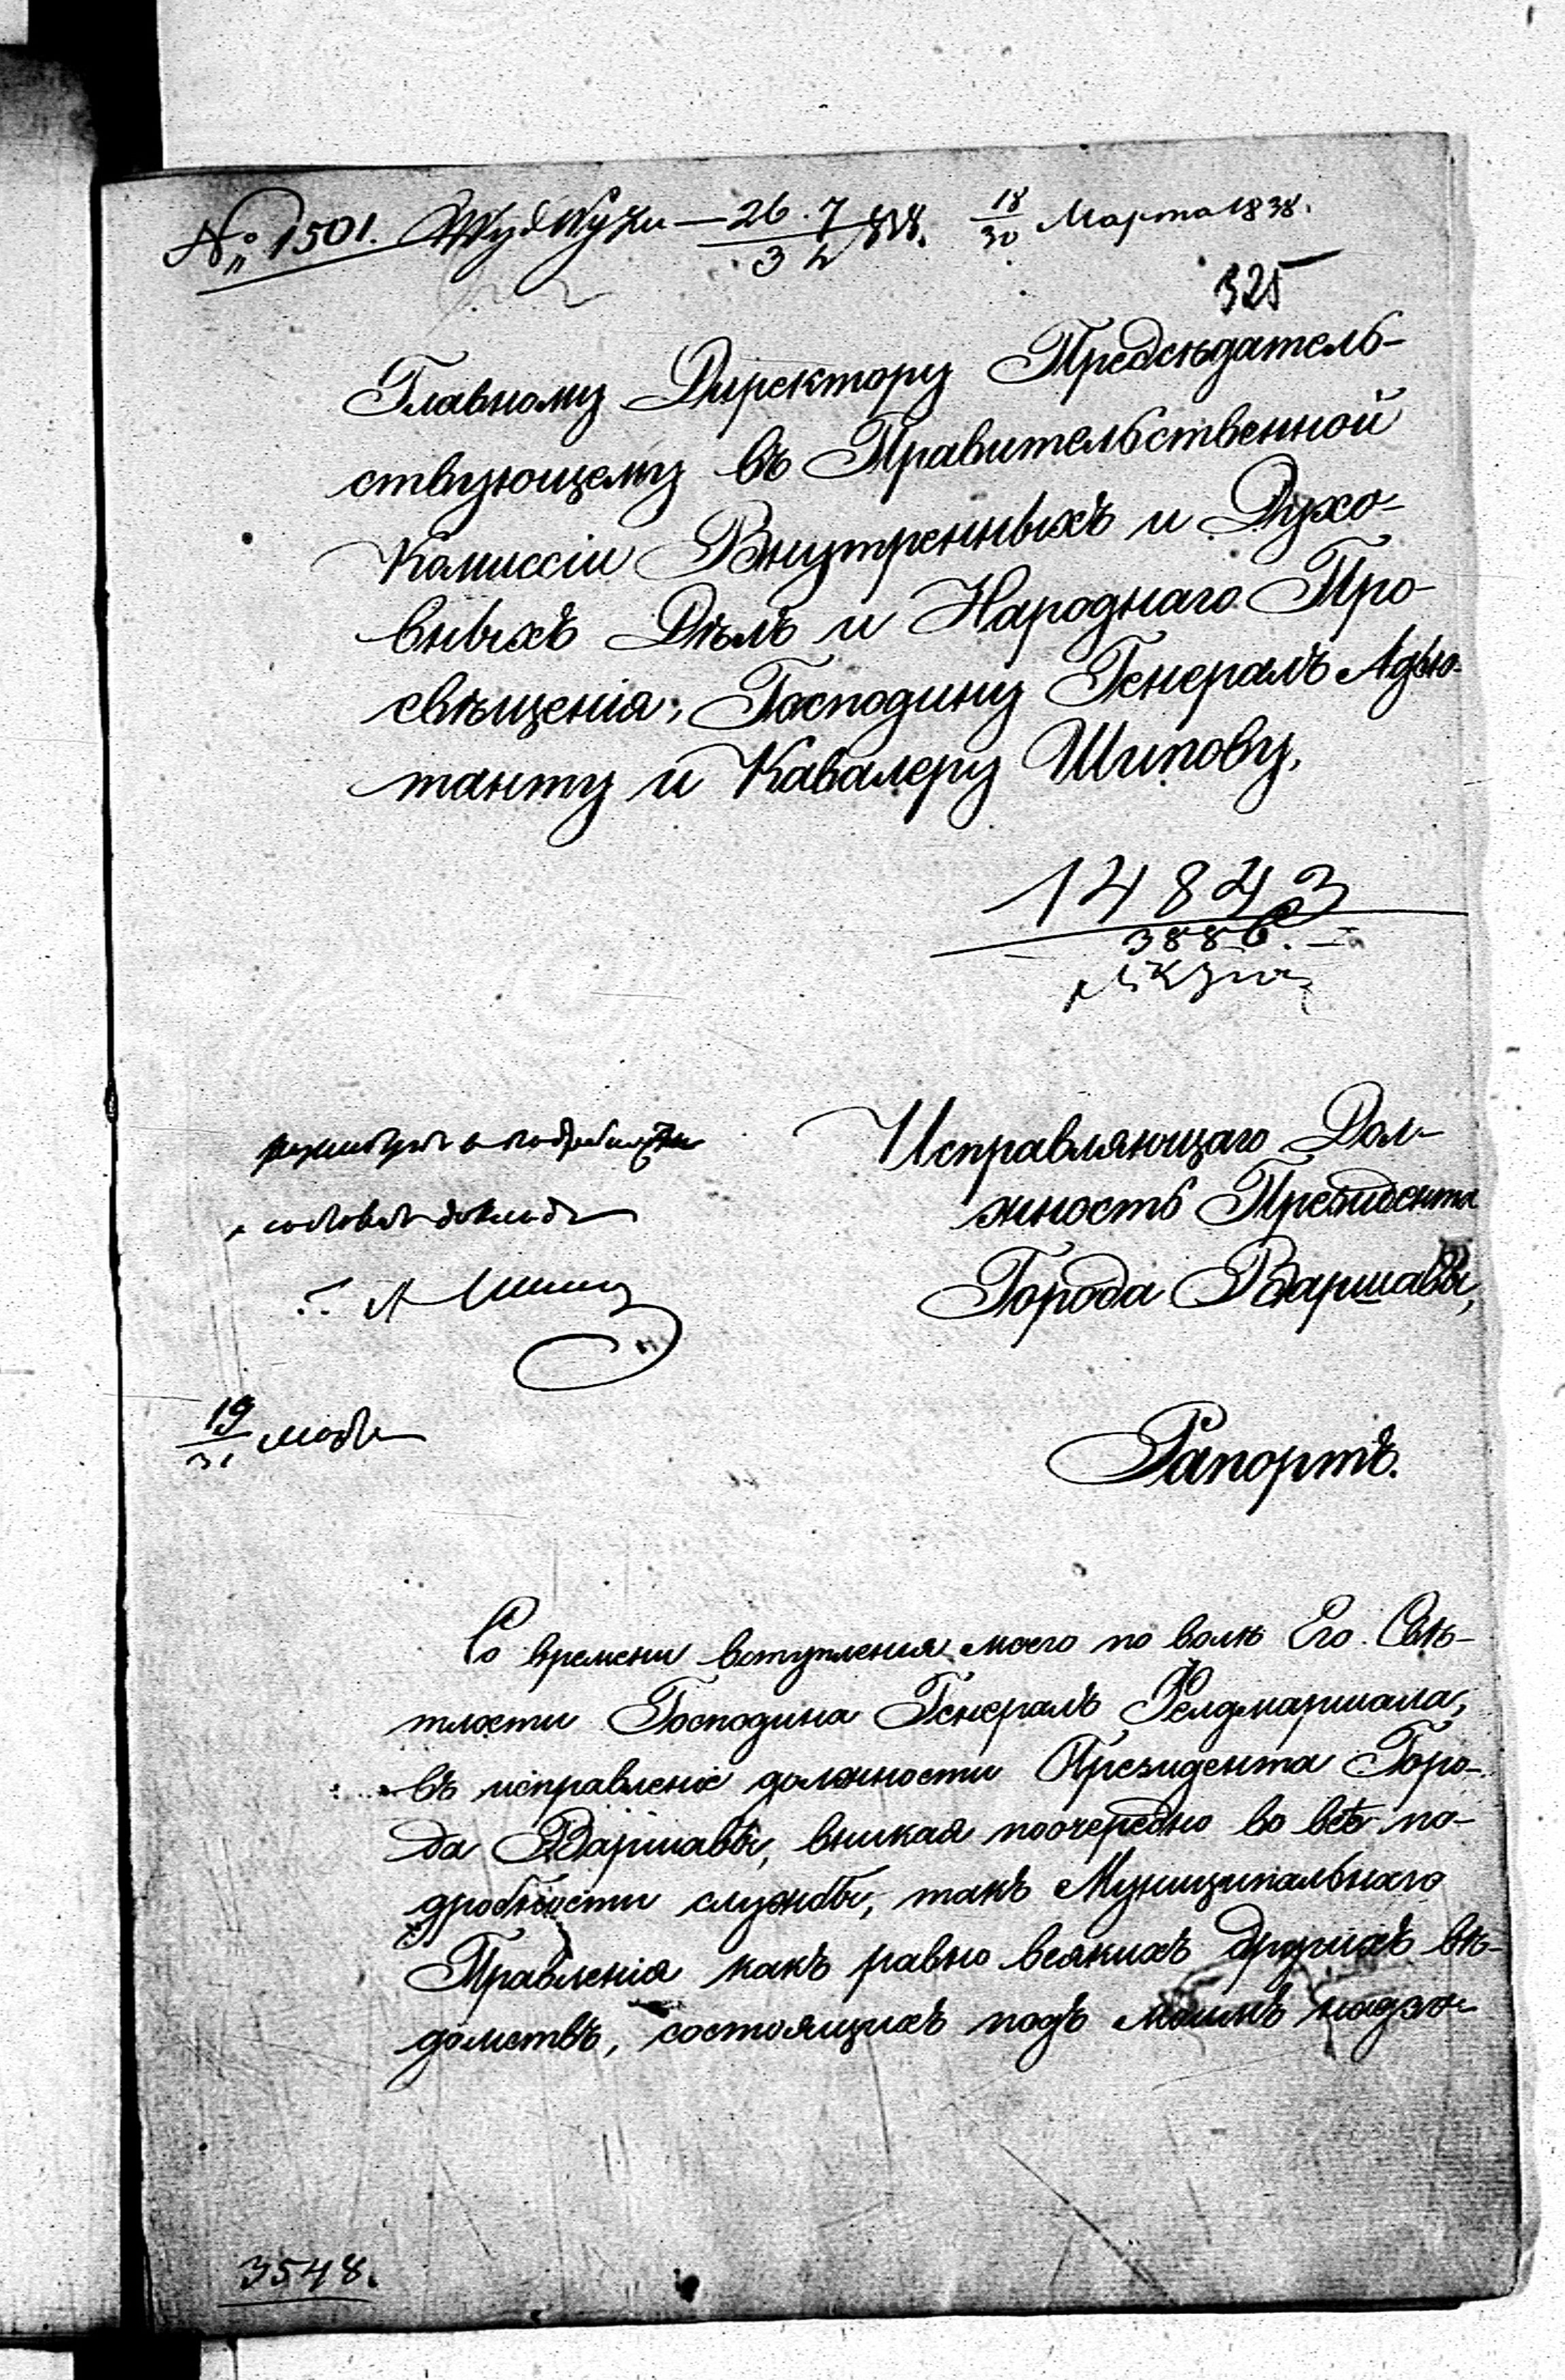 № 1501. 18/30 Марта 1838.
325
Главному Директору Предсѣдатель-
ствующему въ Правительственной
Коммиссіи Внутренныхъ и Духо-
вныхъ Дѣлъ и Народнаго Про-
свѣщенія, Господину Генералъ Адъю-
танту и Кавалеру Шипову.
14843
3886.
Исправляющаго Дол-
жность Президента
Города Варшавы,
19/31
Рапортъ.
Со времени вступленія моего по волѣ Его Свѣ-
тлости Господина Генералъ Фелдмаршала,
въ исправленіе должности Президента Горо-
да Варшавы, вникая поочередно во всѣ по-
дробности службы, такъ Муниципальнаго
Правленія какъ равно всякихъ другихъ вѣ-
домствъ, состоящихъ подъ моимъ надзо-
3548.